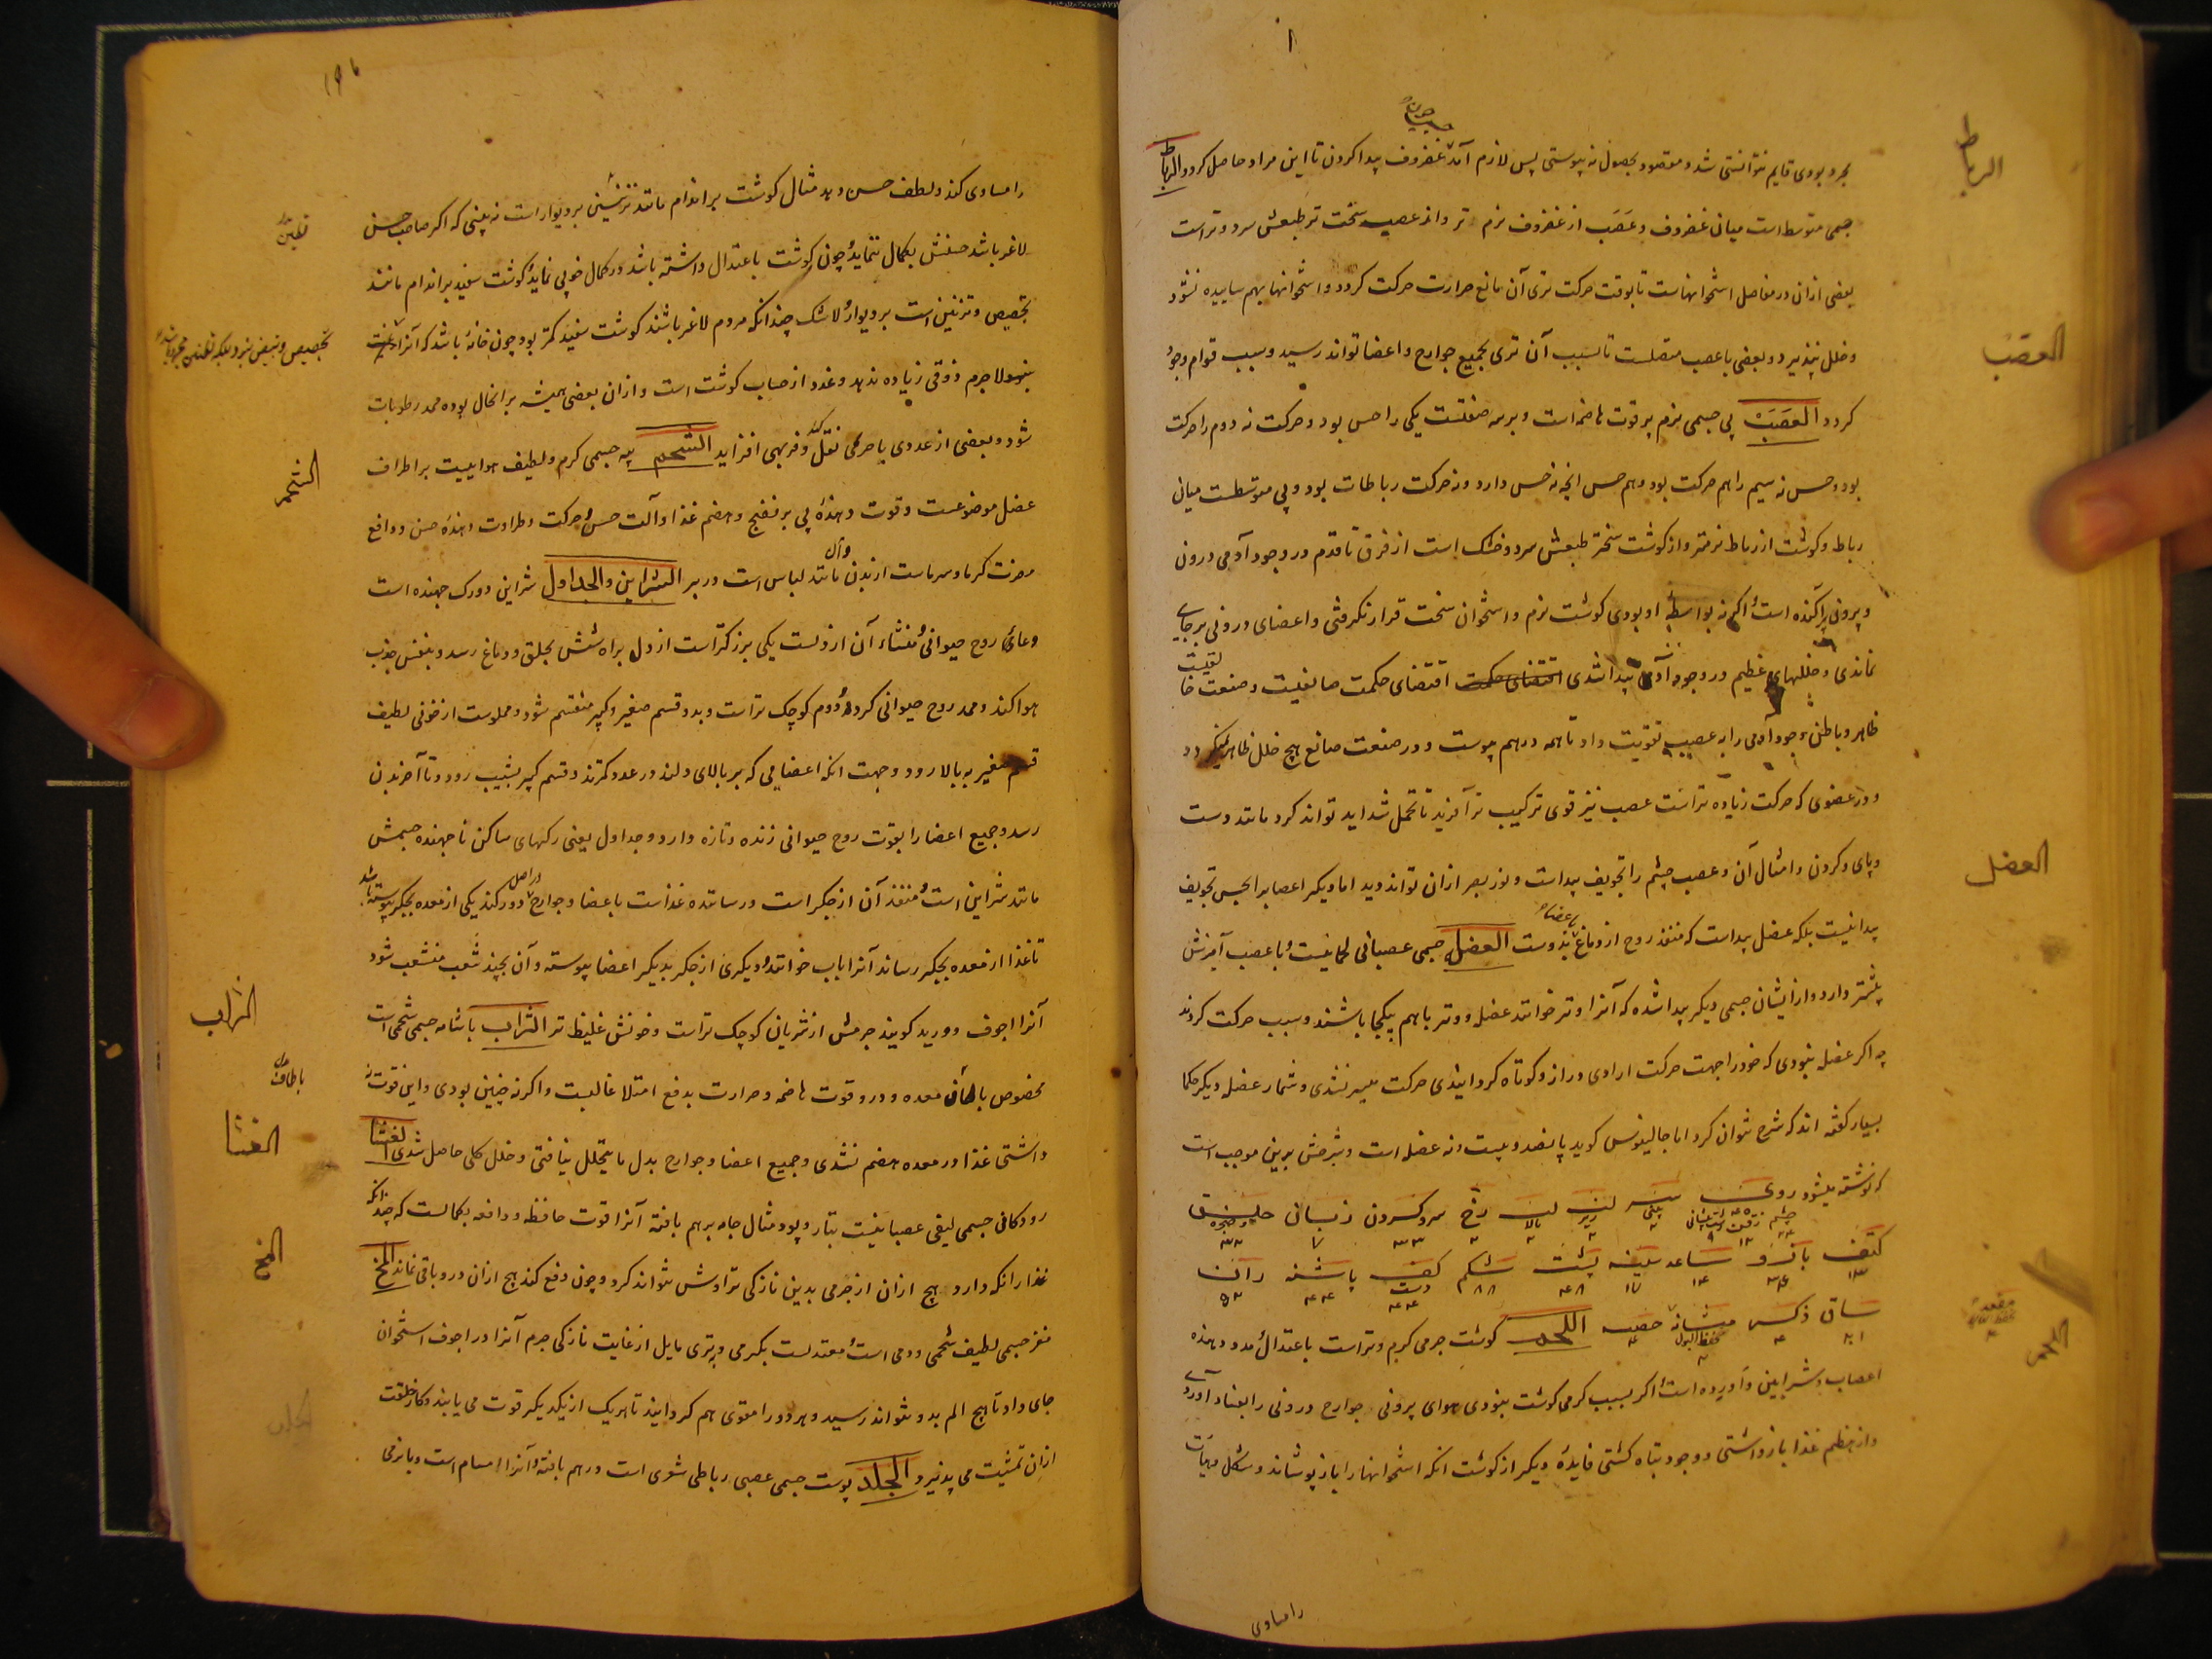 الرباط
بجرد بودی قایم نتوانستی شد و مقصود بحصول نه پیوستی پس لازم آمد غضروف پیدا کردن تا این مراد حاصل کردد الرباط
جسمی متوسط است میان غضروف و عَصَب از غضروف نرم تر و از عصب سخت تر طبعش سرد و تر است
بعضی ازان در مفاصل استخوانهاست تا بوقت حرکت تری آن مانع حرارت حرکت کردد و استخوانها بهم ساییده نشود
العصب
و خلل نپذیرد و بعضی با عصب متصلست تا بسبب آن تری بجمیع جوارح و اعضا تواند رسید و سبب قوام وجود
کردد العَصَبْ پی جسمی نرم پر قوت هاضمه است و بر سه صفتست یکی را حس بود و حرکت نه دوم را حرکت
بود و حس نه سیم را هم حرکت بود و هم حس انچه نه حس دارد و نه حرکت رباطات بود و پی متوسطست میان
رباط و کوشت از رباط نرمتر و از کوشت سختر طبعش سرد و خشک است از فرق تا قدم در وجود آدمی درون
و بیرونی پراکنده است اکر نه بواسطه او بودی کوشت نرم و استخوان سخت قرار نکرفتی و اعضای درونی بر جای
نماندی و خللهای عظیم در وجود آدمی پیدا شدی اقتضای حکمت اقتضای حکمت صانعیت و صنعت خالقیت
ظاهر و باطن وجود آدمی را به عصب تقویت داد تا همه درهم پیوست و در صنعت صانع هیچ خلل ظاهر نمیکردد
و در عضوی که حرکت زیاده تر است عصب نیز قوی ترکیب تر آفرید تا تحمل شداید تواند کرد مانند دست
العضل
و پای و کردن و امثال آن و عصب چشم را تجویف پیداست و نور بصر ازان تواند دید اما دیکر اعصاب را بحس تجویف
پیدا نیست بلکه عضل پیداست که منفذ روح از دماغ باعضا بدوست العضل جسمی عصبانی لحمانیست و با عصب آمیزش
بیشتر دارد و از ایشان جسمی دیکر پیدا شده که آنرا وتر خوانند عضله و وتر باهم یکجا باشند و سبب حرکت کردند
چه اکر عضله نبودی که خود را جهت حرکت ارادی دراز و کوتاه کردانیدی حرکت میسر نشدی و شمار عضله دیکر حکما
بسیار کفته اند که شرح نتوان کرد اما جالینوس کوید پانصد و بیست و نه عضله است و شرحش برین موجب است
که نوشته میشود روی لب زیر لب بالا زخ سر و کردن زبان حلق و حنجره
کتف بازو ساعد سینه پشت شکم کف دست پاشنه ران
ساق ذکر مثانه حفظ البول خصیه اللحم کوشت جرمی کرم و تر است باعتدال مدد دهنده
اللحم
اعصاب و شرایین و آورده است اکر بسبب کرمی کوشت نبودی هوای بیرونی جوارح درونی را بفساد آوردی
و از هضم غذا باز داشتی و وجود تباه کشتی فایدهٔ دیکر از کوشت انکه استخوانها را باز پوشاند و شکل و هیات
را مساوی
را مساوی کند و لطف حسن دهد مثال کوشت بر اندام مانند تزیینی بر دیوار است نه بینی که اکر صاحب حسن
لاغر باشد حسنش بکمال ننماید و چون کوشت باعتدال داشته باشد در کمال خوبی نماید و کوشت سفید بر اندام مانند
تجصیص و تزیین است بر دیوار لاشک چندانکه مردم لاغر باشند کوشت سفید کمتر بود چون خانهٔ باشد که آنرا
لاجرم ذوقی زیاده ندهد و غدد از حساب کوشت است و ازان بعضی همیشه بر انحال بوده ممد رطوبات
الشحم
شود و بعضی از غددی یا حرکی نقل کند و فربهی افزاید الشحم پیه جسمی کرم و لطیف هواییست بر اطراف
عضل موضوعست و قوت دهندهٔ پی بر نضج و هضم غذا و آلت حس و حرکت و طراوت دهنده حسن و دافع
مضرت کرما و سرماست از بدن و آن مانند لباس است در بر الشراین و الجداول شراین دو رک جهنده است
وعای روح حیوانی و منشاء آن از دلست یکی بزرکتر است از دل براه شش بحلق و دماغ رسد و بنفس جذب
هوا کند و ممد روح حیوانی کردد و دوم کوچک تر است و بدو قسم صغیر و کبیر منقسم شود و مملوست از خونی لطیف
قسم صغیر به بالا رود و جهت انکه اعضایی که بر بالای دلند در عدد کمترند و قسم کبیر بشیب رود و تا آخر بدن
رسد و جمیع اعضا را بقوت روح حیوانی زنده و تازه دارد و جداول یعنی رکهای ساکن نا جهنده جسمش
مانند شراین است و منفذ آن از جکر است و رساننده غذاست باعضا و جوارح در اصل دو رکند یکی از معده بجکر پیوسته باشد
تا غذا از معده بجکر رساند آنرا باب خوانند و دیکری از جکر بدیکر اعضا پیوسته و آن بچند شعب منشعب شود
الثراب
آنرا اجوف و ورید کویند جرمش از شریان کوچک تر است و خونش غلیظ تر الثراب باشامه جسمی شحمی است
مخصوص معده و درو قوت هاضمه و حرارت بدفع امتلا غالبست و اکر نه چنین بودی و این قوت نه
الغشا
داشتی غذا در معده هضم نشدی و جمیع اعضا و جوارح بدل ما یتحلل نیافتی و خلل کلی حاصل شدی الغشا
رودکانی جسمی لیفی عصبانیست بتار و پود مثال جامه برهم بافته آنرا قوت حافظه و دافعه بکمالست که چندانکه
المخ
غذا را نکه دارد هیچ ازان از جرمی بدین نازکی تراوش نتواند کرد و چون دفع کند هیچ ازان درو باقی نماند المخ
مغز جسمی لطیف شحمی و دمی است و معتدلست بکرمی و برتری مایل از غایت نازکی جرم آنرا در اجوف استخوان
جای داد تا هیچ الم بدو نتواند رسید و هر دو را مقوی هم کردانید تا هریک از یکدیکر قوت می یابند و کار خلقت
ازان تمشیت می پذیرد الجلد پوست جسمی عصبی رباطی شعری است درهم بافته و آنرا مسام است و با نرمی